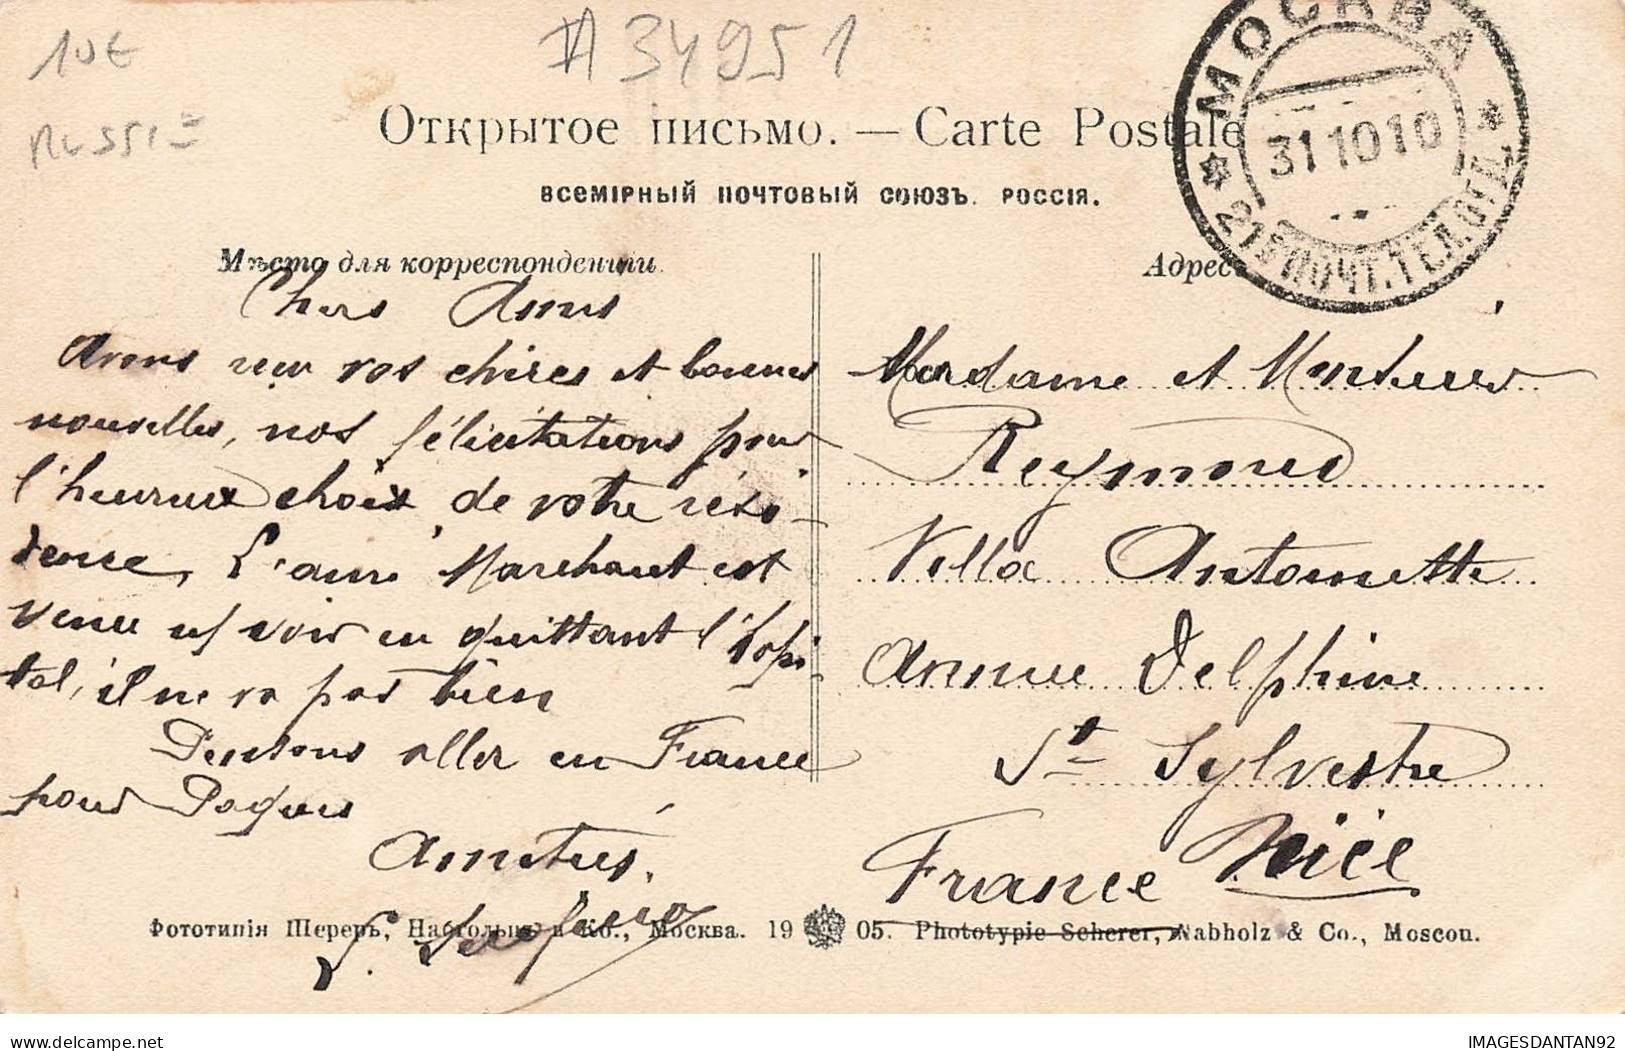 10€
Russie
#34951
Открытое письмо. — Carte Postale
ВСЕМІРНЫЙ ПОЧТОВЫЙ СОЮЗЪ. РОССІЯ.
МОСКВА
31 10 10
Мѣсто для корреспонденціи
Адресъ
Chers Amis
Avons reçu vos chères et bonnes
nouvelles, nos félicitations pour
l'heureux choix de votre rési-
dence, L'ami Marchaut est
venu n/ voir en quittant l'hopi-
tal, il ne va pas bien
Pensons aller en France
pour Paques
Amitiés.
Madame et Monsieur
Reymond
Villa Antoinette
Avenue Delphine
St Sylvestre
Nice
France
Фототипія Шереръ, Набгольцъ и Ко., Москва. 19 05. Phototypie Scherer, Nabholz & Co., Moscou.
https://www.delcampe.net
IMAGESDANTAN92